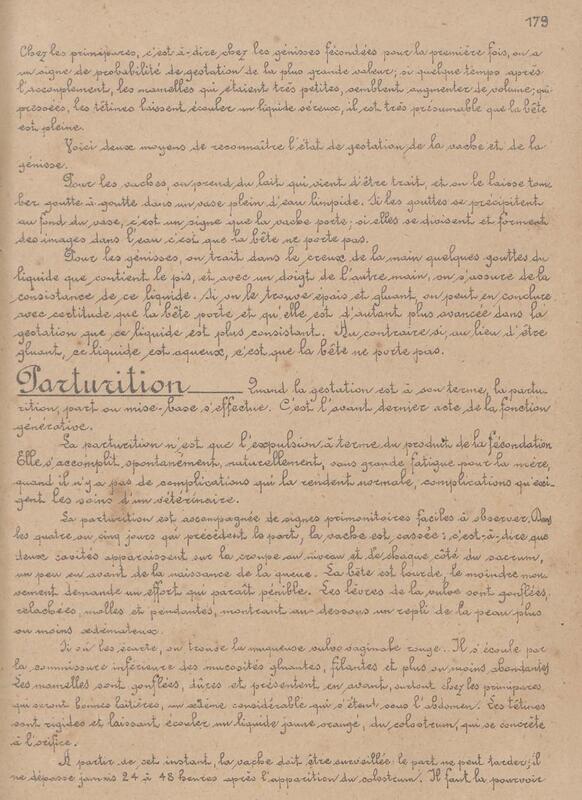 179
Chez les primipares, c'est-à-dire chez les génisses fécondées pour la première fois, on a
un signe de probabilité de gestation de la plus grande valeur; si quelque temps après
l'accouplement, les mamelles qui étaient très petites, semblent augmenter de volume; qui
pressées, les tétines laissent écouler un liquide séreux, il est très présumable que la bête
est pleine.
Voici deux moyens de reconnaître l'état de gestation de la vache et de la
génisse.
Pour les vaches, on prend du lait qui vient d'être trait, et on le laisse tom
ber goutte à goutte dans un vase plein d'eau limpide. Si les gouttes se précipitent
au fond du vase, c'est un signe que la vache porte; si elles se divisent et forment
des images dans l'eau c'est que la bête ne porte pas.
Pour les génisses, on trait dans le creux de la main quelques gouttes du
liquide que contient le pis, et avec un doigt de l'autre main, on s'assure de la
consistance de ce liquide. Si on le trouve épais et gluant, on peut en conclure
avec certitude que la bête porte et qu'elle est d'autant plus avancée dans la
gestation que ce liquide est plus consistant. Au contraire si, au lieu d'être
gluant, ce liquide est aqueux, c'est que la bête ne porte pas.
Parturition Quand la gestation est à son terme, la partu-
rition, part ou mise-base s'effectue. C'est l'avant dernier acte de la fonction
générative.
La parturition n'est que l'expulsion à terme du produit de la fécondation
Elle s'accomplit, spontanément, naturellement, sans grande fatigue pour la mère,
quand il n'y a pas de complications qui la rendent normale, complications qui exi-
gent les soins d'un vétérinaire.
La parturition est accompagnée de signes primonitoires faciles à observer. Dans
les quatre ou cinq jours qui précèdent le part, la vache est cassée: c'est-à-dire que
deux cavités apparaissent sur la croupe au niveau et de chaque côté du sacrum,
un peu en avant de la naissance de la queue. La bête est lourde, le moindre mou
vement demande un effort qui paraît pénible. Les lèvres de la vulve sont gonflées,
relachées, molles et pendantes, montrant au-dessous un repli de la peau plus
ou moins œdémateux.
Si on les écarte, on trouve la muqueuse vulvo vaginale rouge. Il s'écoule par
la commissure inférieure des mucosités gluantes, filantes et plus ou moins abondantes
Les mamelles sont gonflées, dures et présentent en avant, surtout chez les primipares
qui seront bonnes laitières, un œdème considérable qui s'étend sous l'abdomen. Les tétines
sont rigides et laissant écouler un liquide jaune orangé, du colostrum, qui se concrète
à l'orifice.
A partir de cet instant, la vache doit être surveillée: le part ne peut tarder; il
ne dépasse jamais 24 à 48 heures après l'apparition du colostrum. Il faut la pourvoir